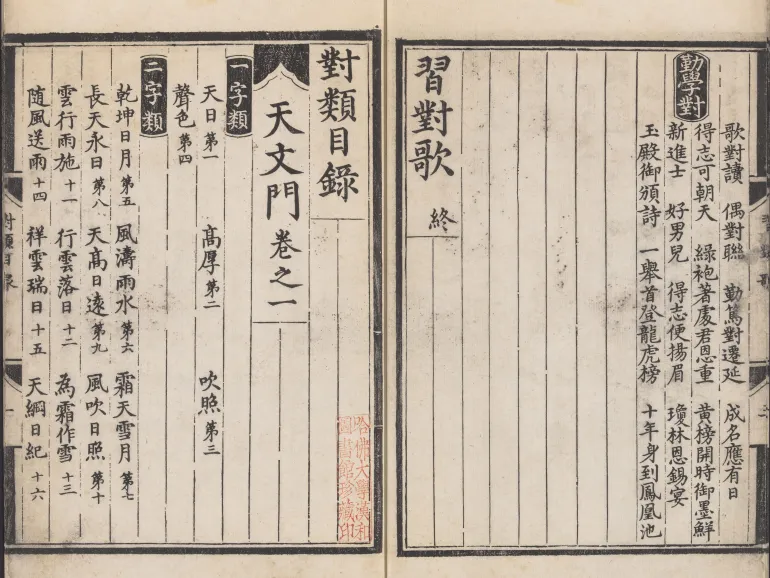 歌對讀 偶對聯 勤篤對遷延 成名應有日
得志可朝天 綠袍著處君恩重 黃榜開時御墨鮮
勤學對
新進士 好男兒 得志便揚眉 瓊林恩錫宴
玉殿御頒詩 一舉首登龍虎榜 十年身到鳳凰池
習對歌 終
對類目錄
天文門 卷之一
一字類
天日第一 高厚第二 吹照第三
聲色第四
二字類
乾坤日月第五 風濤雨水第六 霜天雪月第七
長天永日第八 天高日遠第九 風吹日照第十
雲行雨施十一 行雲落日十二 為霜作雪十三
隨風送雨十四 祥雲瑞日十五 天綱日紀十六
哈佛大學漢和
圖書館珍藏印